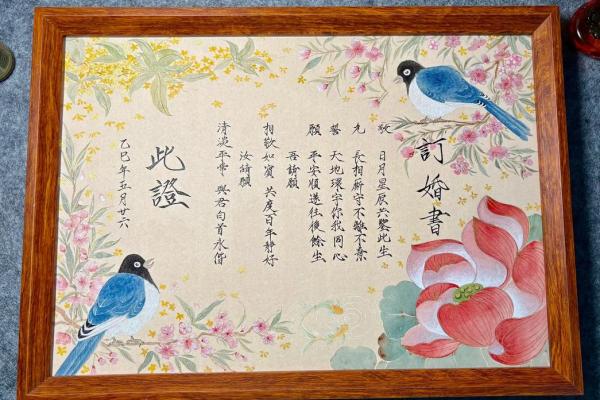 訂婚書
敬 日月星辰 共鑒此生
允 長相廝守 不離不棄
誓 天地環宇 你我同心
願 平安順遂 往後餘生
吾諦願
相敬如賓 共度百年靜好
汝諦願
清淡平常 與君白首永偕
此證
乙巳年五月廿六